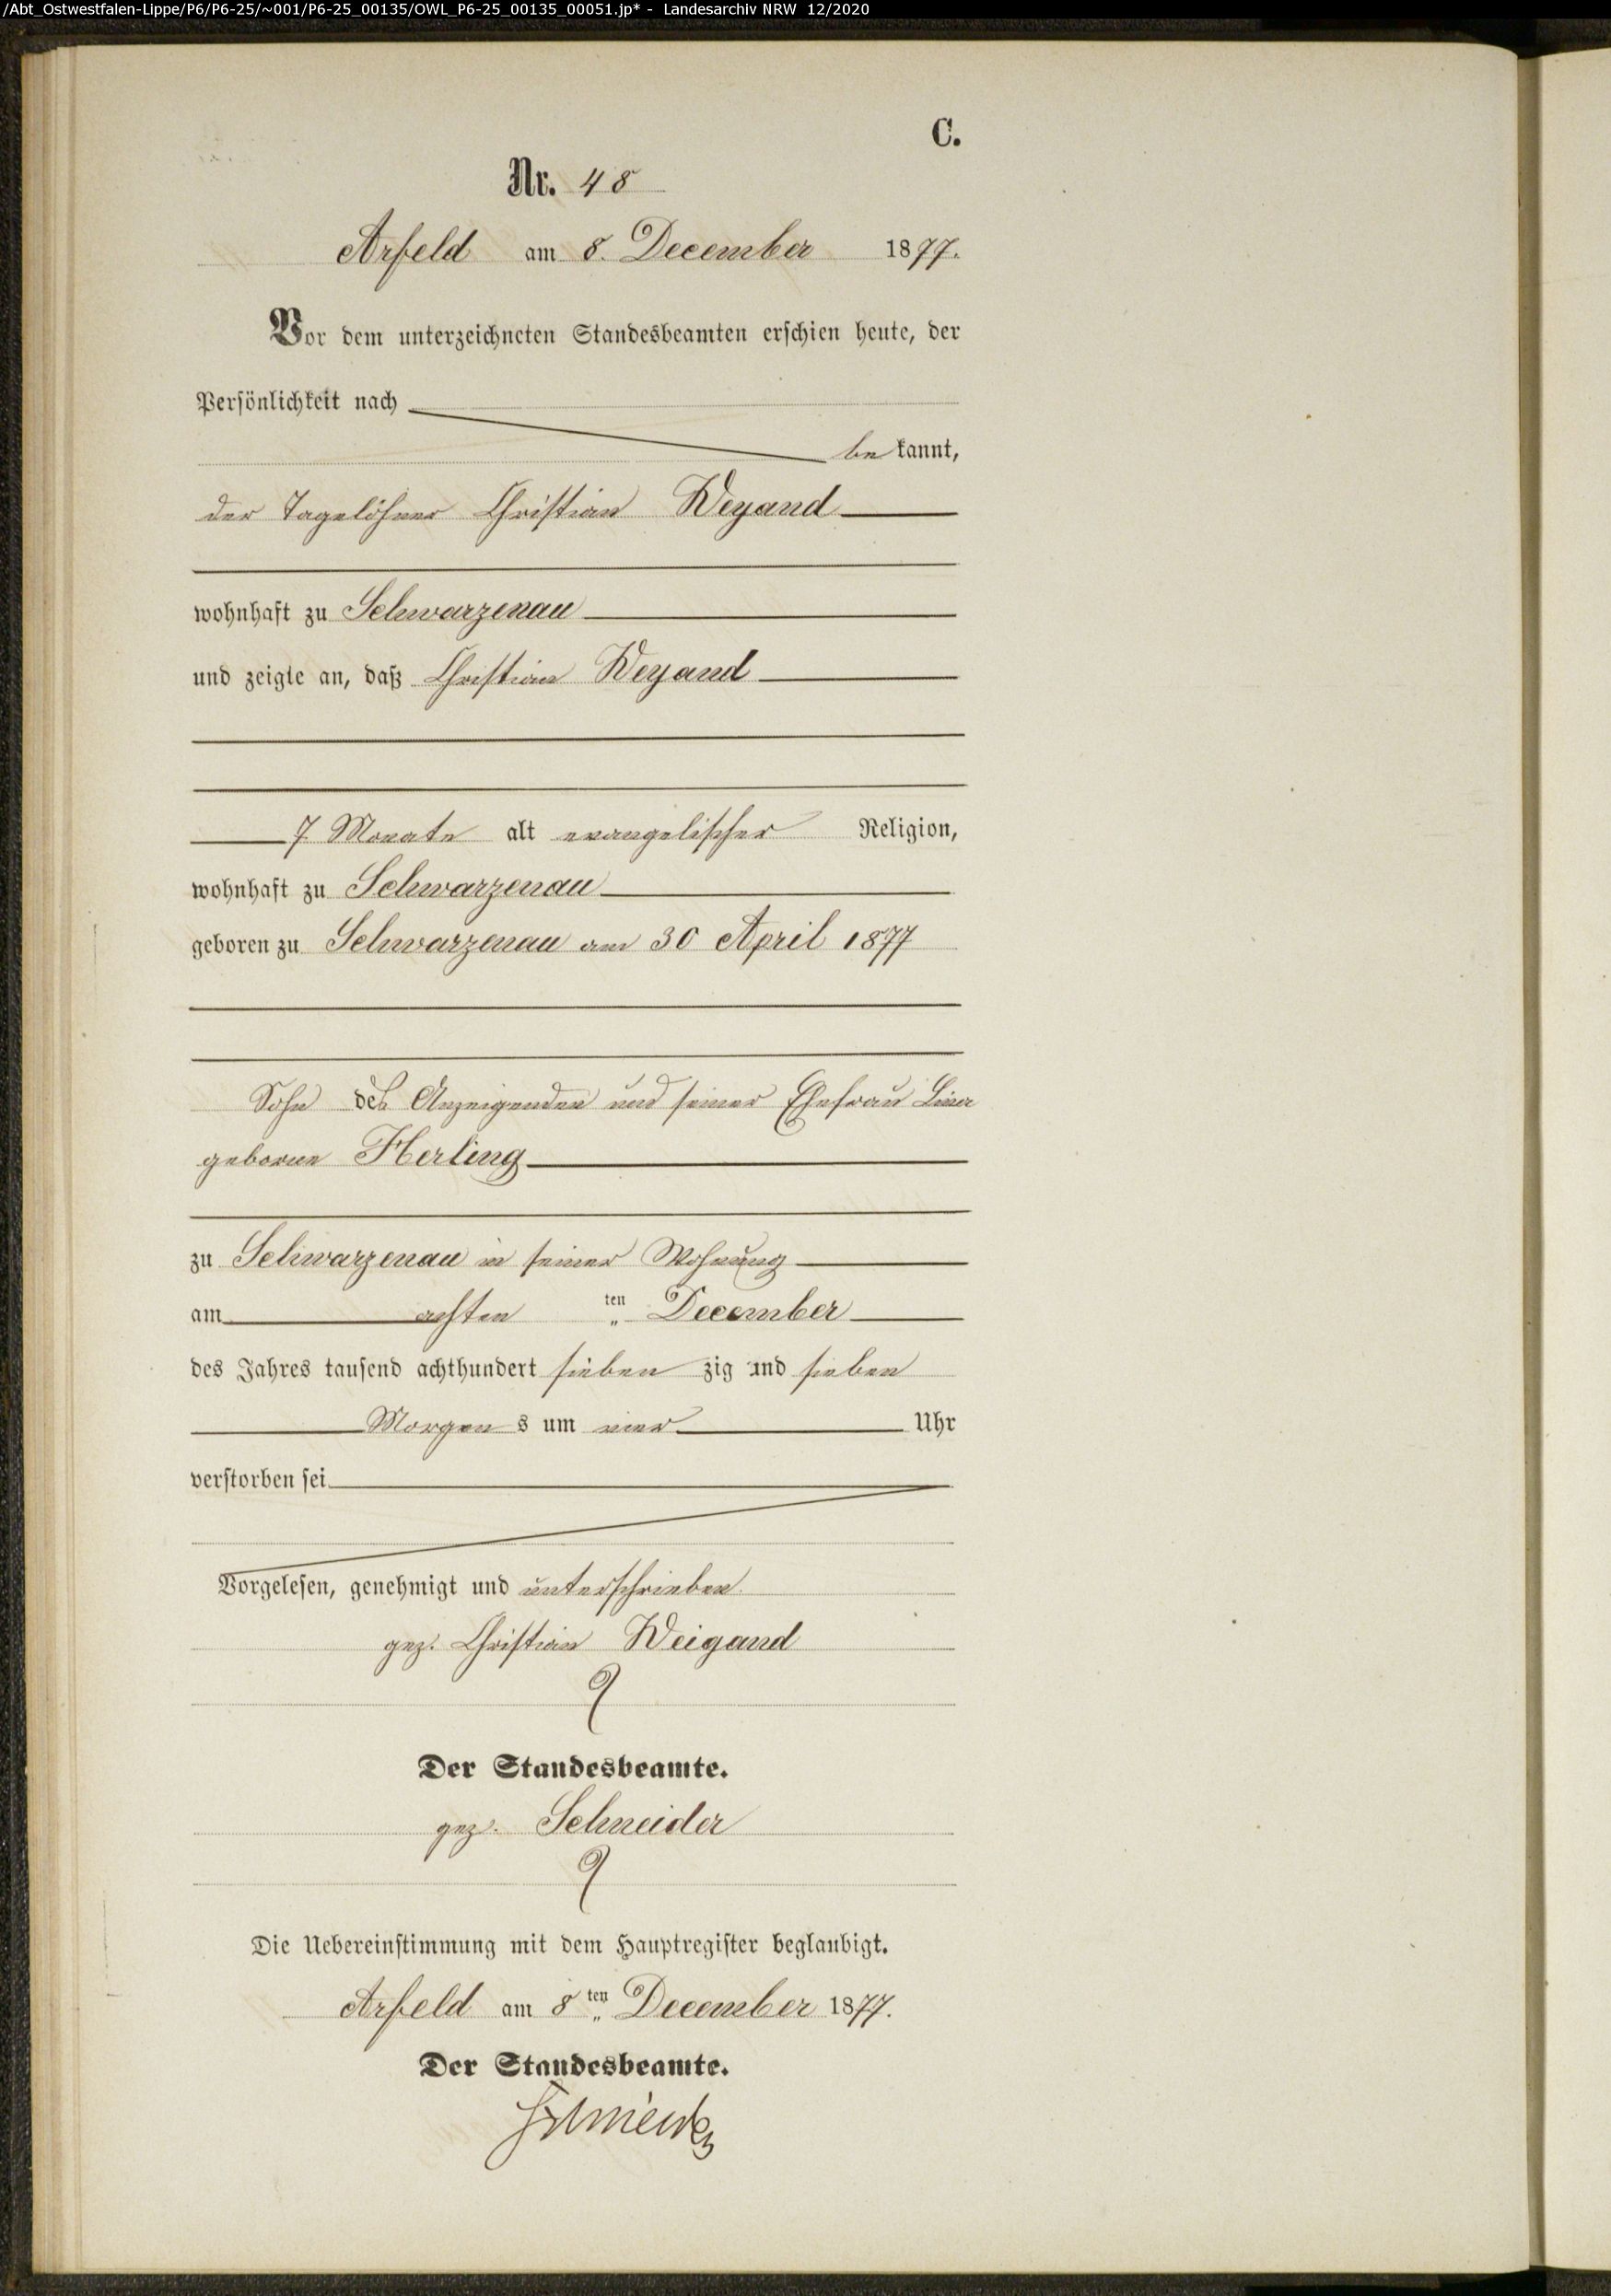 /Abt_Ostwestfalen-Lippe/P6/P6-25/~001/P6-25_00135/OWL_P6-25_00135_00051.jp* - Landesarchiv NRW 12/2020
C.
Nr. 48
Arfeld am 8. December 1877.
Vor dem unterzeichneten Standesbeamten erschien heute, der
Persönlichkeit nach
be kannt,
der Tagelöhner Christian Weyand
wohnhaft zu Schwarzenau
und zeigte an, daß Christian Weyand
7 Monate alt evangelischer Religion,
wohnhaft zu Schwarzenau
geboren zu Schwarzenau am 30 April 1877
Sohn des Anzeigenden und seiner Ehefrau Lina
geborne Herling
zu Schwarzenau in seiner Wohnung
am achten ten December
des Jahres tausend achthundert sieben zig und sieben
Morgen s um vier Uhr
verstorben sei
Vorgelesen, genehmigt und unterschrieben
gez. Christian Weigand
Der Standesbeamte.
gez. Schneider
Die Uebereinstimmung mit dem Hauptregister beglaubigt.
Arfeld am 8 ten December 1877.
Der Standesbeamte.
Schneider